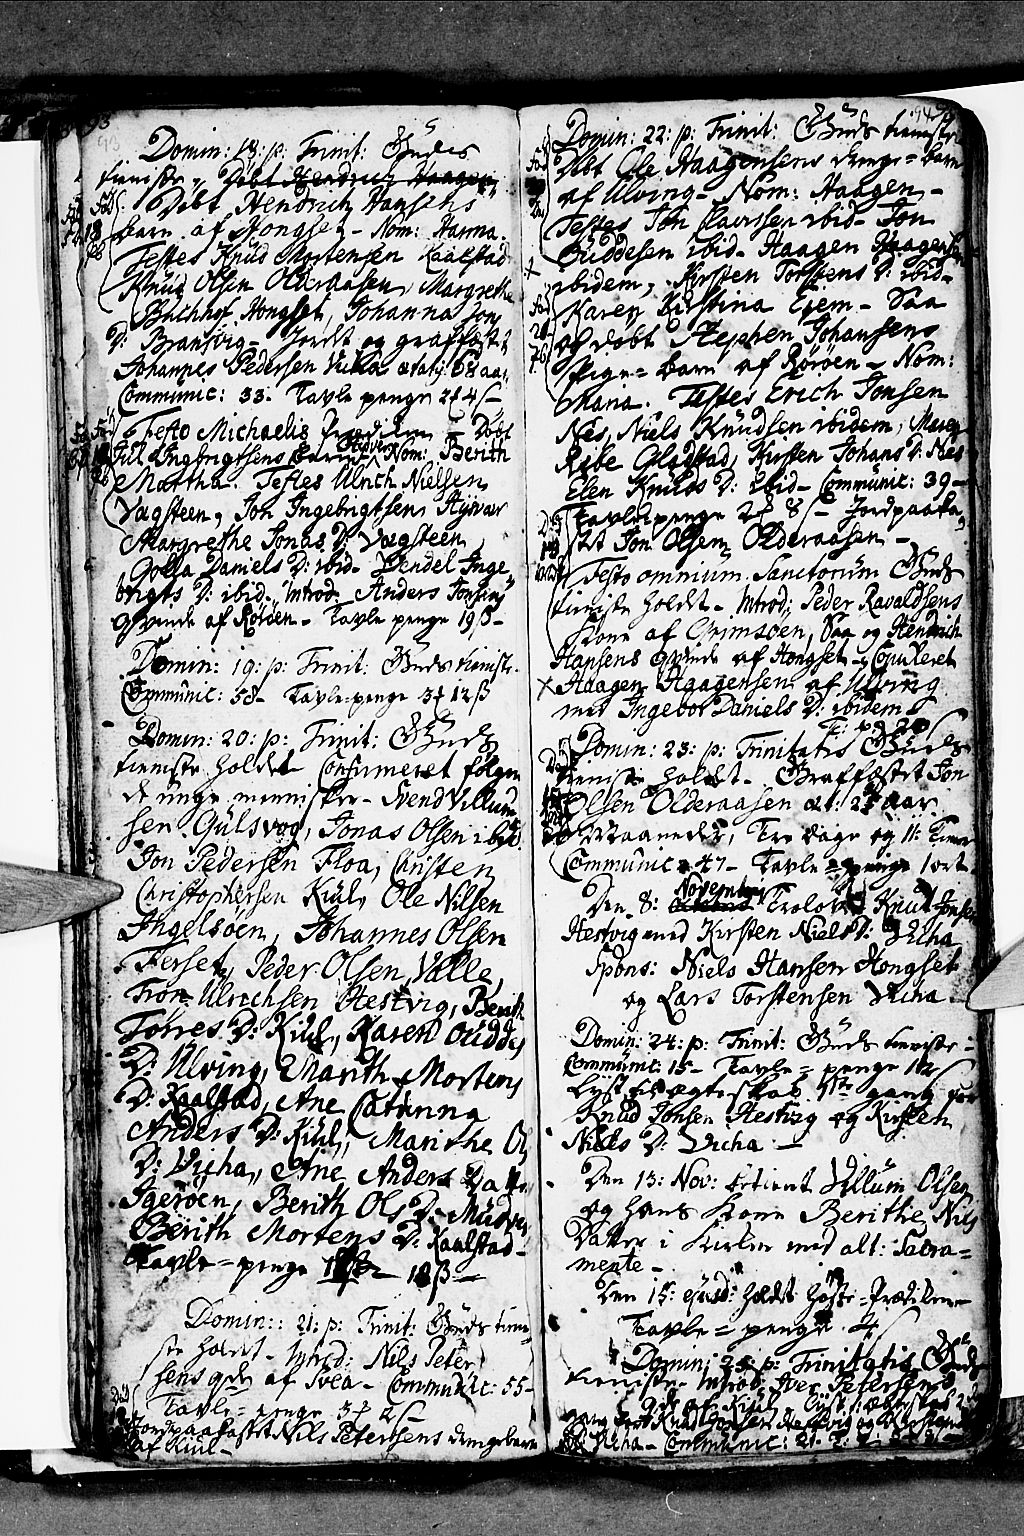 93
Domin: 18: p: Trinit: Guds
tieniste, Døbt Hendrich Haagen
Døbt Hendrich Hansens
barn af Hongset - Nom: Hanna.
Testes Knud Mortensen Kaalstad
Knud Olsen Olderaasen, Margrethe
Buchhof Hongset, Johanna Jon
D: Bransvig - Jordet og graffæst
Johannes Pedersen Vicha ætat: 68 aar
Communic: 33. Tavle penge 2 4
Festo Michaelis Prædiken - Døbt
Jul Ingebrigtsens Nom: Berith
Martha. Testes Ulrich Nielsen
Vagsteen, Jon Ingebrigtsen Hysvær
Margrethe Jonas D: Vagsteen
Golla Daniels D: ibid - Vendel Inge
brigts D: ibid. Introd. Anders Jonsens
Qvinde af Rørøen - Tavle penge 19 β -
Domin: 19: p: Trinit: Guds tieniste
Communic: 58 - Tavle-penge 3 12 β
Domin: 20: p: Trinit: Guds
tieniste holdet Confirmeret følgen
de unge mennisker - Svend Villum
sen Gulsvog, Jonas Olsen ibid
Jon Pedersen Floa, Christen
Christophersen Kiul, Ole Nilsen
Ingelsøen, Johannes Olsen
Ferset, Peder Olsen, Valle,
Tron Ulrichsen Hestvig, Berith
Torres D: Kiul, Karen Guddes
D: Ulving, Marith Mortens
D: Kaalstad, Ane Catrinna
Anders D: Kiul, Marithe Ol
D: Vicha, Ane Anders Datter
Igerøen, Berith Ols D:
Berith Mortens D: Kaalstad -
Tavle = penge 18 β -
Domin: 21: p: Trinit: Guds tieni
ste holdt - Introd: Nils Peter
sens qde af Tvea - Communic: 55 -
Tavle = penge 3 2
Jordpaakastet Nils Petersens drengebarn
af Kiul -
94
Domin: 22: p: Trinit: Guds tieniste
Døbt Ole Haagensens drenge = barn
af Ulving - Nom: Haagen -
Testes Jon Laursen ibid - Jon
Guddesen ibid - Haagen Haagensen
ibidem, Kirsten Torstens D: ibid -
Karen Kirstina Egem - Saa
og døbt Stephen Johansens
Pige = barn af Rørøen - Nom:
Maria. Testes Erich Jonsen
Nes, Niels Knudsen ibidem, Maren
Røbe Gladstad, Kirsten Johans D: Nes
Elen Knuds D: ibid - Communic: 39 -
Tavlepenge 2 8 - Jordpaaka
stet Jon Olsen Olderaasen -
Festo omnium Sanctorum Guds
tieniste holdt - Introd: Peder Ravaldsens
Kone af Grimsøen, Saa og Hendrich
Hansens Qvinde af Hongset - Copuleret
Haagen Haagensen af Ulving
med Ingebor Daniels D: ibidem
Domin: 23: p: Trinitatis Guds
tieniste holdt - Graffæstet Jon
Olsen Olderaasen æt: 25 aar
Maaneder, Tre dage og 11: timer
Communic: 47 - Tavle = penge 1 ort -
Den 8: November Trolovet Knud Jonsen
Hestvig med Kirsten Niels D: Vicha
Spons: Niels Hansen Hongset
og Lars Torstensen Vicha -
Domin: 24: p: Trinit: Guds tieniste =
Communic: 15 - Tavle = penge
Lyst til ægteskab 1ste gang for
Knud Jonsen Hestvig og Kirsten
Niels D: Vicha -
Den 13: Nov: betient Villum Olsen
og hans Kone Berithe Nils
Datter i Kirken med alt: Sacra=
mente -
Den 15: ejusd: holdt Høste = Prædiken
Tavle = penge 4
Domin: 25: p: Trinitatis Guds
tieniste - Introd: Iver Petersens
qde af Kiul, Lyst til ægteskab 2den
gang for Knud Jonsen Hestvig og Kirsten Niels
D: Vicha - Communic: 21.